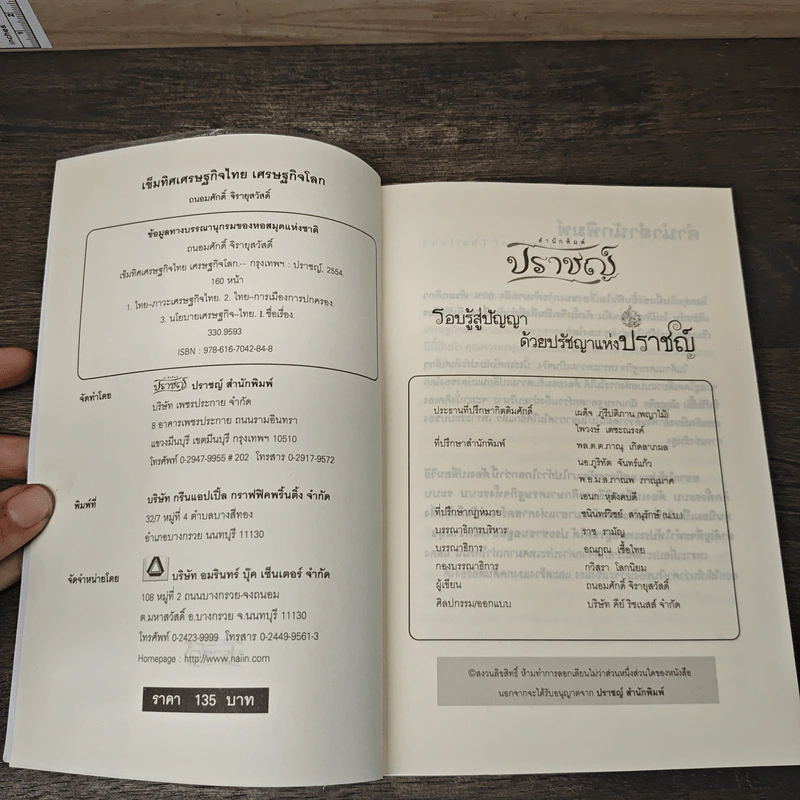 เข็มทิศเศรษฐกิจไทย เศรษฐกิจโลก
ถนอมศักดิ์ จิรายุสวัสดิ์
ข้อมูลทางบรรณานุกรมของหอสมุดแห่งชาติ
ถนอมศักดิ์ จิรายุสวัสดิ์
เข็มทิศเศรษฐกิจไทย เศรษฐกิจโลก.-- กรุงเทพฯ : ปราชญ์, 2554.
160 หน้า
1. ไทย-ภาวะเศรษฐกิจไทย. 2. ไทย-การเมืองการปกครอง.
3. นโยบายเศรษฐกิจ-ไทย. I. ชื่อเรื่อง.
330.9593
ISBN : 978-616-7042-84-8
จัดทำโดย ปราชญ์ ปราชญ์ สำนักพิมพ์
บริษัท เพชรประกาย จำกัด
8 อาคารเพชรประกาย ถนนรามอินทรา
แขวงมีนบุรี เขตมีนบุรี กรุงเทพฯ 10510
โทรศัพท์ 0-2947-9955 # 202 โทรสาร 0-2917-9572
พิมพ์ที่ บริษัท กรีนแอปเปิ้ล กราฟฟิคพริ้นติ้ง จำกัด
32/7 หมู่ที่ 4 ตำบลบางสีทอง
อำเภอบางกรวย นนทบุรี 11130
จัดจำหน่ายโดย บริษัท อมรินทร์ บุ๊ค เซ็นเตอร์ จำกัด
108 หมู่ที่ 2 ถนนบางกรวย-จงถนอม
ต.มหาสวัสดิ์ อ.บางกรวย จ.นนทบุรี 11130
โทรศัพท์ 0-2423-9999 โทรสาร 0-2449-9561-3
Homepage : http://www.naiin.com
ราคา 135 บาท
สำนักพิมพ์
ปราชญ์
รอบรู้สู่ปัญญา
ด้วยปรัชญาแห่งปราชญ์
ประธานที่ปรึกษากิตติมศักดิ์ เผด็จ ภูรีปติภาน (พญาไม้)
ไพวงษ์ เตชะณรงค์
ที่ปรึกษาสำนักพิมพ์ พล.ต.ต.ภาณุ เกิดลาภผล
นอ.ภูริทัต จันทร์แก้ว
พ.อ.ม.ล.ภาณพ ภาณุมาศ
เอนก หุตังคบดี
ที่ปรึกษากฎหมาย ชนินทร์วิชย์ สานุรักษ์ (น.บ.)
บรรณาธิการบริหาร ราช รามัญ
บรรณาธิการ อณฎณ เชื้อไทย
กองบรรณาธิการ กวิสรา โลกนิยม
ผู้เขียน ถนอมศักดิ์ จิรายุสวัสดิ์
ศิลปกรรม/ออกแบบ บริษัท คีย์ ริชเนสส์ จำกัด
©สงวนลิขสิทธิ์ ห้ามทำการลอกเลียนไม่ว่าส่วนหนึ่งส่วนใดของหนังสือ
นอกจากจะได้รับอนุญาตจาก ปราชญ์ สำนักพิมพ์